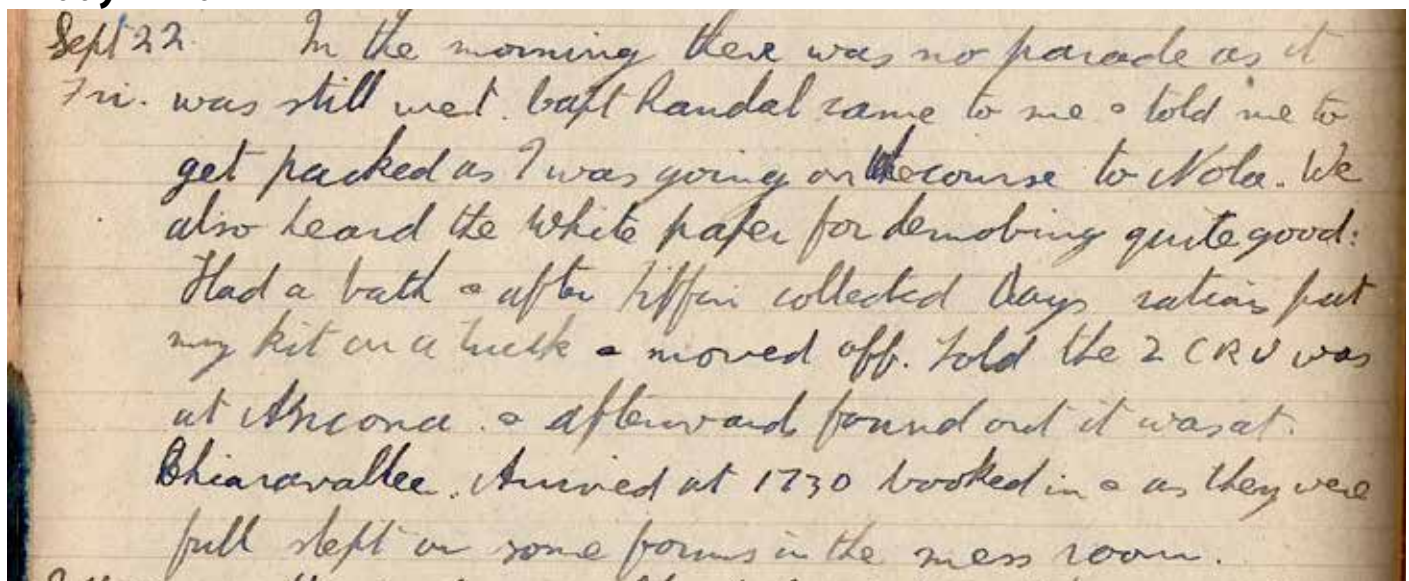 Sept 22. In the morning there was no parade as it
Fri. was still wet. Capt Randal came to me & told me to
get packed as I was going on the course to Nola. We
also heard the White paper for demobing quite good:
Had a bath & after tiffin collected days ration put
my kit on a truck & moved off. Told the 2 CRU was
at Ancona. & afterwards found out it was at.
Chiaravallee. Arrived at 1730 booked in & as they were
full slept on some forms in the mess room.